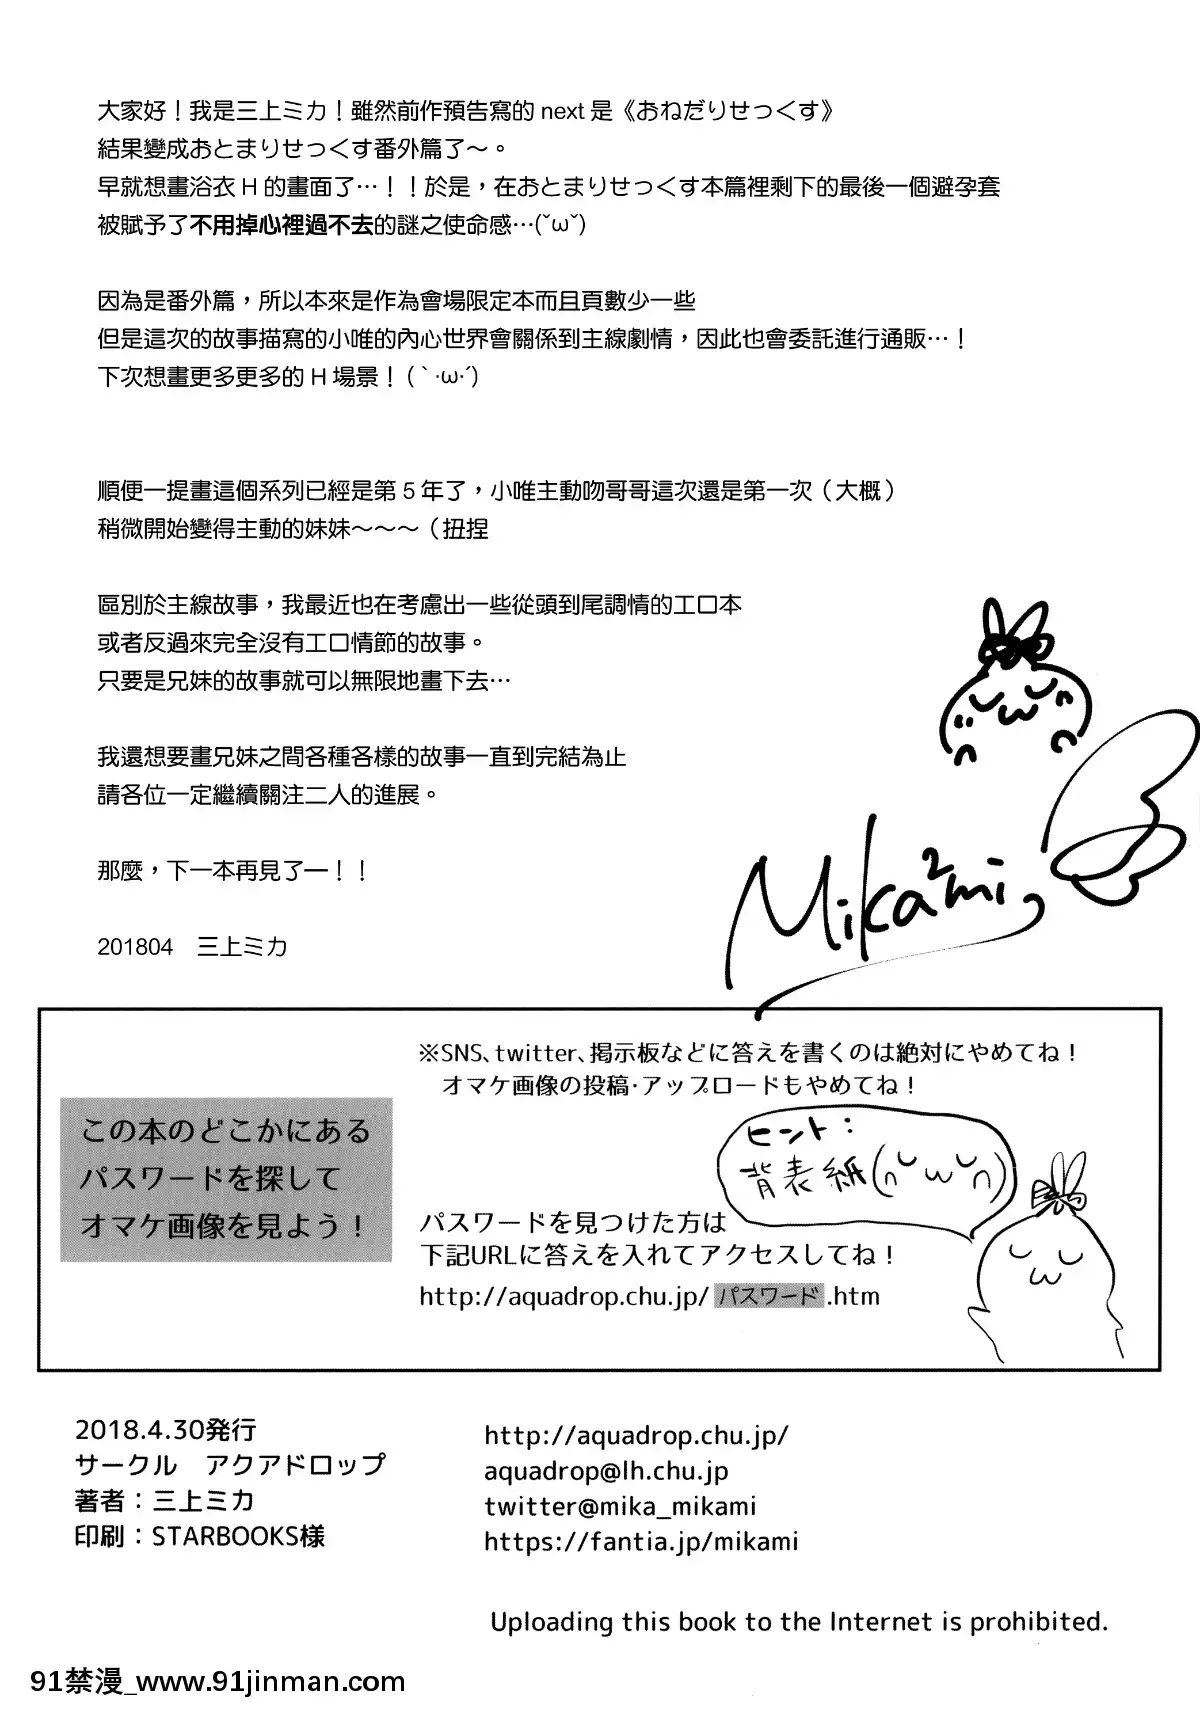 大家好！我是三上ミカ！雖然前作預告寫的 next 是《おねだりせっくす》
結果變成おとまりせっくす番外篇了～。
早就想畫浴衣 H 的畫面了…！！於是，在おとまりせっくす本篇裡剩下的最後一個避孕套
被賦予了不用掉心裡過不去的謎之使命感…(˘ω˘)
因為是番外篇，所以本來是作為會場限定本而且頁數少一些
但是這次的故事描寫的小唯的內心世界會關係到主線劇情，因此也會委託進行通販…！
下次想畫更多更多的 H 場景！(｀·ω·´)
順便一提畫這個系列已經是第 5 年了，小唯主動吻哥哥這次還是第一次（大概）
稍微開始變得主動的妹妹～～～（扭捏
區別於主線故事，我最近也在考慮出一些從頭到尾調情的工口本
或者反過來完全沒有工口情節的故事。
只要是兄妹的故事就可以無限地畫下去…
我還想要畫兄妹之間各種各樣的故事一直到完結為止
請各位一定繼續關注二人的進展。
那麼，下一本再見了ー！！
Mika²mi
201804　三上ミカ
※SNS、twitter、掲示板などに答えを書くのは絶対にやめてね！
オマケ画像の投稿・アップロードもやめてね！
この本のどこかにある
パスワードを探して
オマケ画像を見よう！
ヒント：
背表紙(∩˘ω˘∩)
パスワードを見つけた方は
下記URLに答えを入れてアクセスしてね！
http://aquadrop.chu.jp/ パスワード .htm
2018.4.30発行
サークル　アクアドロップ
著者：三上ミカ
印刷：STARBOOKS様
http://aquadrop.chu.jp/
aquadrop@lh.chu.jp
twitter@mika_mikami
https://fantia.jp/mikami
Uploading this book to the Internet is prohibited.
91禁漫_www.91jinman.com